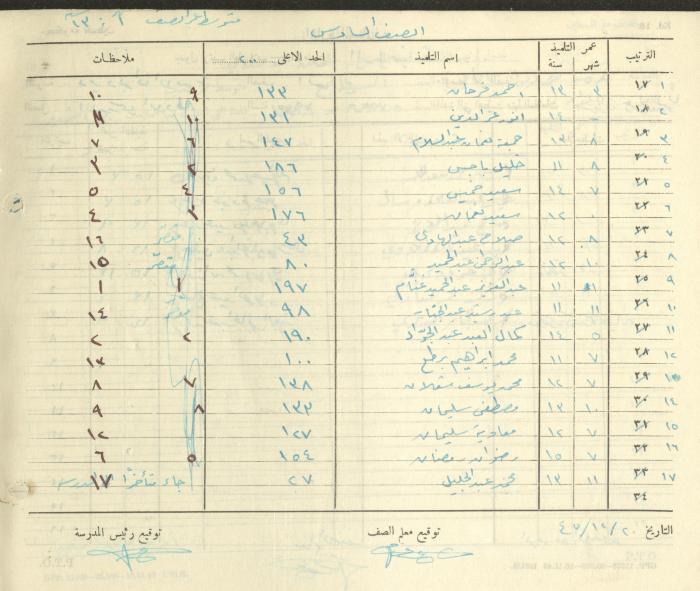 الصف السادس
متوسط عمر الصف
الترتيب عمر التلميذ شهر سنة اسم التلميذ الحد الاعلى ٢٠٠ ملاحظات
١ ١٧ ٣ ١٣ احمد فرحان ١٣٣ ٩ ١٠
٢ ١٨ - ١٤ انور عز الدين ١٣١ ١٠ ١١
٣ ١٩ ٨ ١٣ جمعة نعمان عبد السلام ١٤٧ ٦ ٧
٤ ٢٠ ٨ ١١ خليل ياسين ١٨٦ ٣
٥ ٢١ ٧ ١٤ سعيد خميس ١٥٦ ٤ ٥
٦ ٢٢ ٠ ١٢ سعيد نعمان ١٧٦ ٤
٧ ٢٣ ٨ ١٢ صلاح عبد الهادي ٤٣ مقصر ١٦
٨ ٢٤ ١٠ ١٢ عبد الرحمن عبد الحميد ٨٠ مقصر ١٥
٩ ٢٥ ١١ عبد العزيز عبد الحميد غنام ١٩٧ ١ ١
١٠ ٢٦ ١١ ١١ عبد ٩٨ مقصر ١٤
١١ ٢٧ ٥ ١٤ كمال العبد عبد الجواد ١٩٠ ٢ ٢
١٢ ٢٨ ٧ ١١ محمد ابراهيم ١٠٠ ١٣
١٣ ٢٩ ٧ ١٢ محمد يوسف ١٣٨ ٧ ٨
١٤ ٣٠ ١٠ ١٣ مصطفى سليمان ١٣٣ ٨ ٩
١٥ ٣١ ٧ ١٢ معاوية سليمان ١٢٧ ١٢
١٦ ٣٢ ٧ ١٥ رضوان رمضان ١٥٤ ٥ ٦
١٧ ٣٣ ١١ ١٣ محمد عبد الجليل ٢٧ جاء متأخرًا المدرسة ١٧
٣٤
التاريخ توقيع معلم الصف توقيع رئيس المدرسة